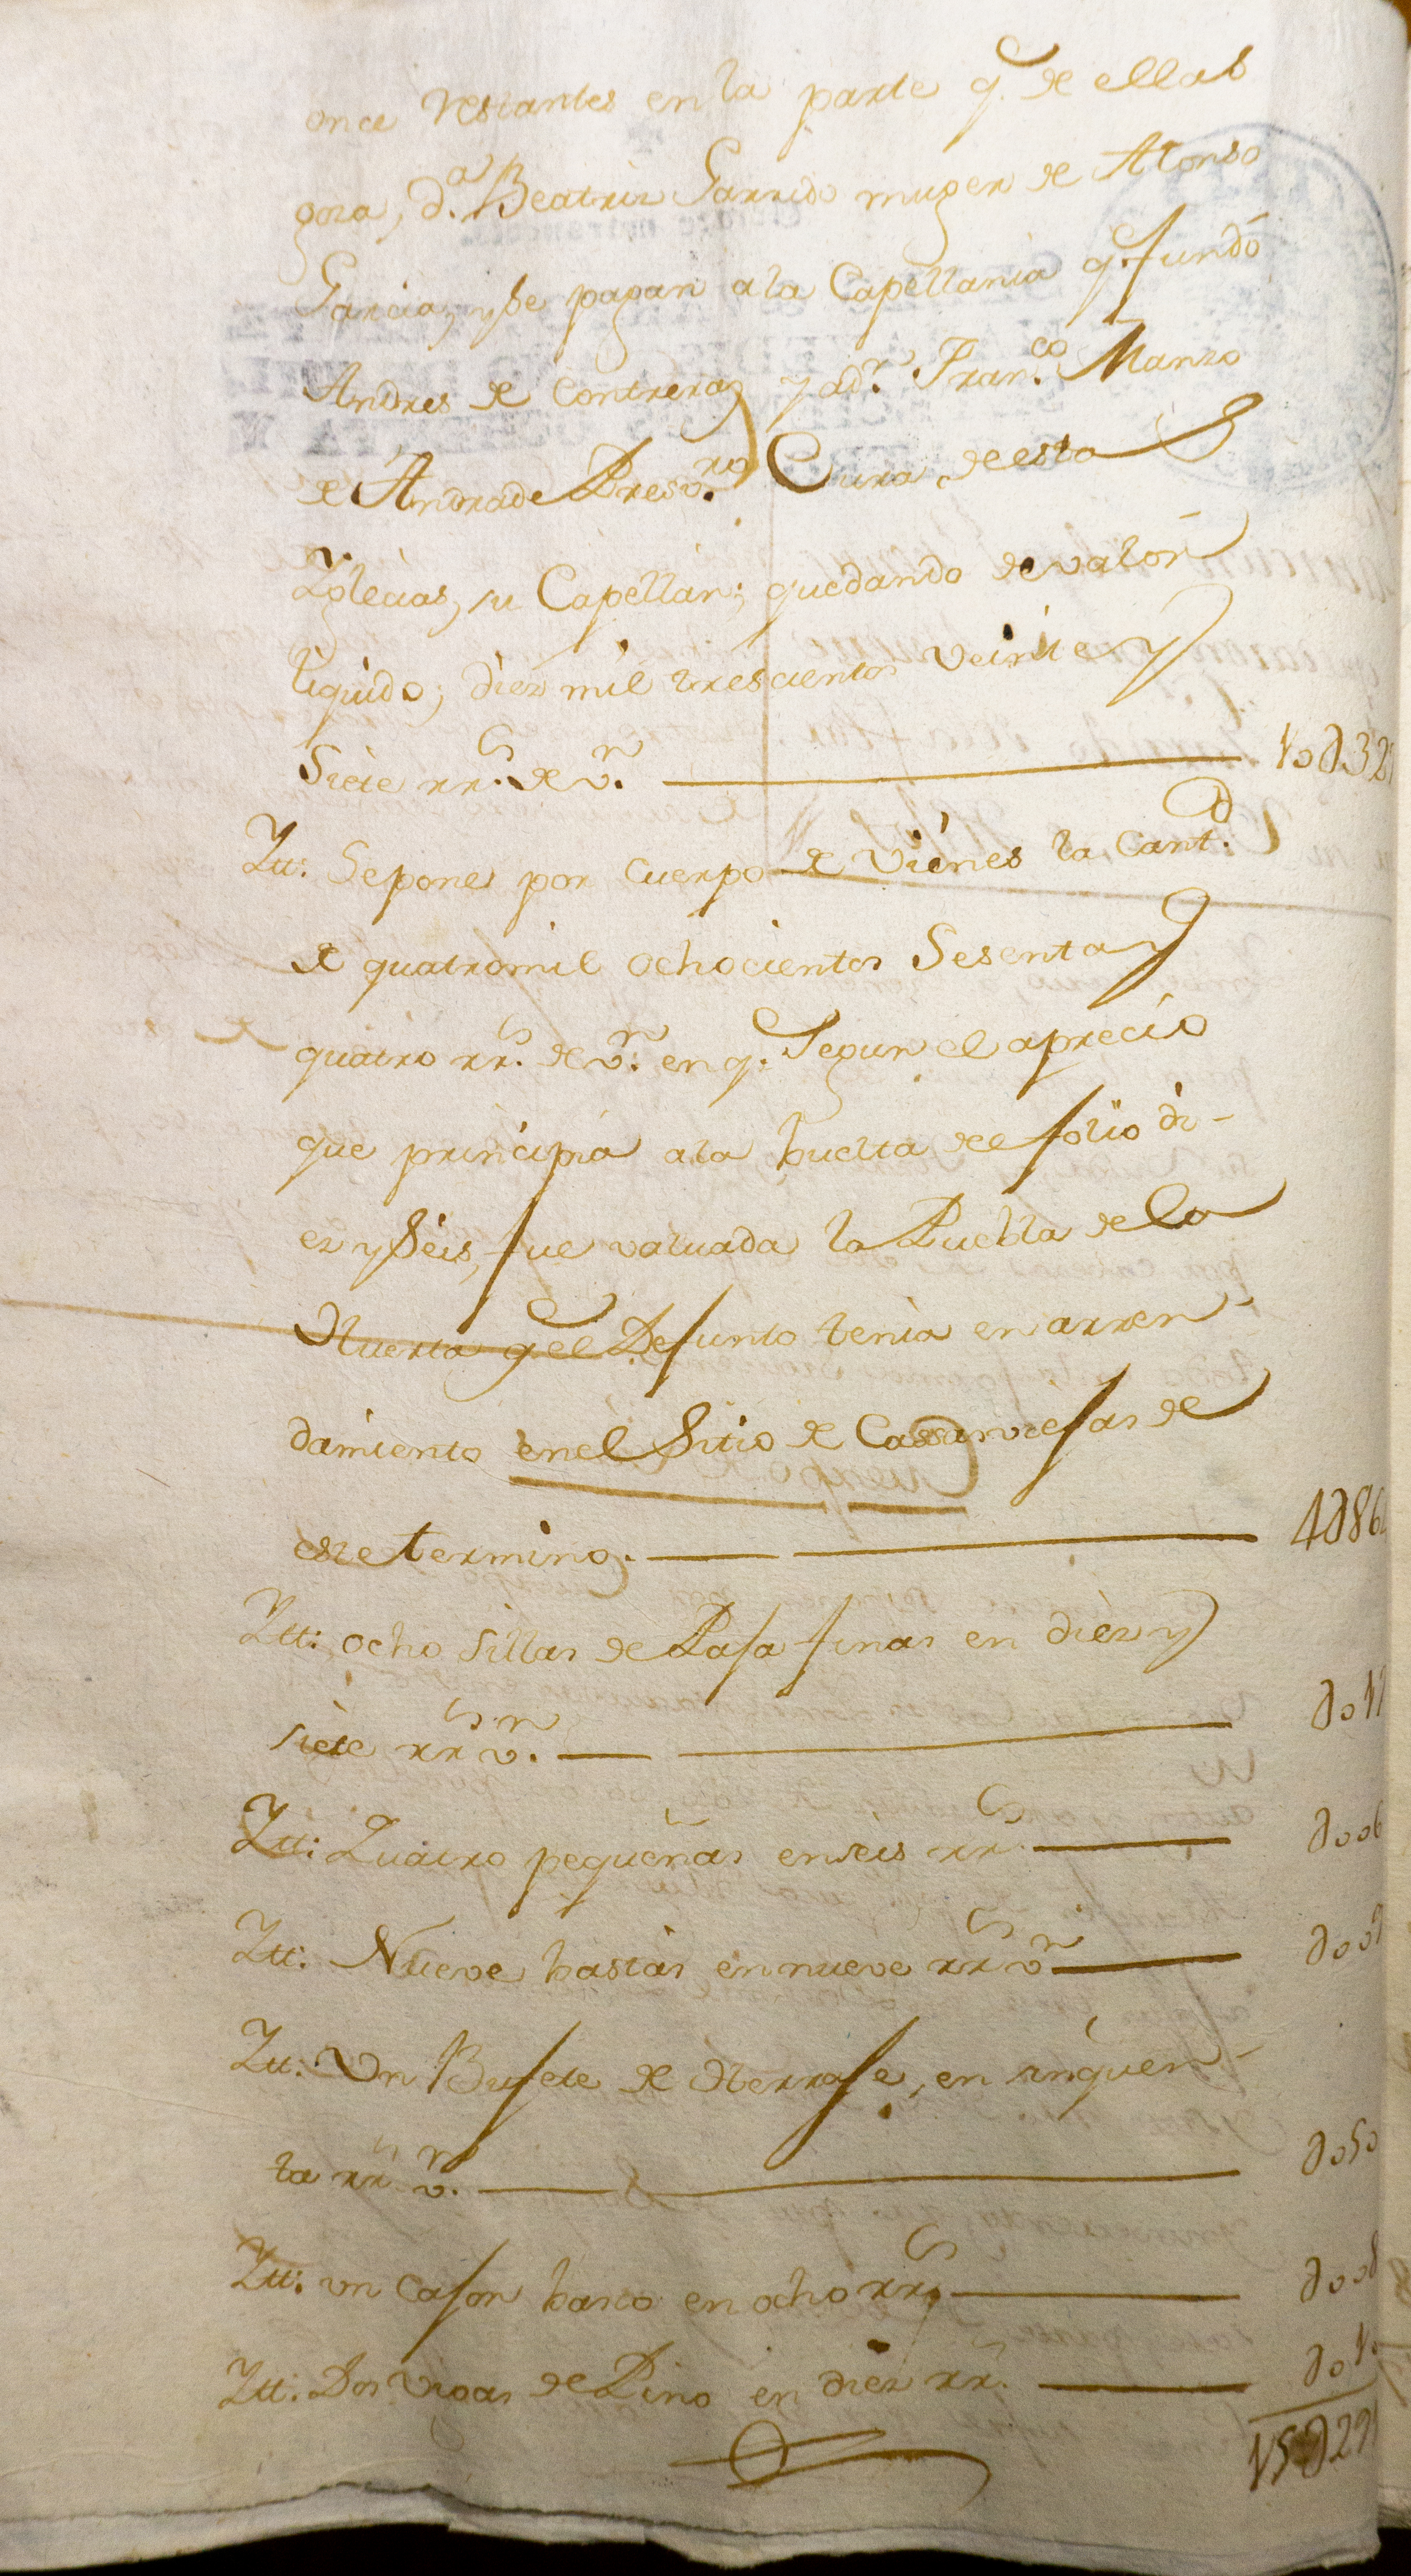 once restantes en la parte q.e de ellas
goza, d.a Beatriz Garrido muger de Alonso
Garcia, y se pagan a la Capellania q.e fundó
Andres de Contreras y a d.n Fran.co Manzo
de Andrade Presv.ro Cura de esta
Yglecias, su Capellan; quedando de valór
liquido; diez mil trescientos veinte y
Siete rr.s de v.n 10∂32
Ytt: Se pones por cuerpo de vienes la Cant.d
de quatro mil ochocientos Sesenta y
quatro rr.s de v.n en q.e Segun el aprecio
que principia a la buelta del folio di-
ez y seis, fue valuada la Puebla de la
Huerta q.e el Defunto tenia en arren-
damiento en el Sitio de Casarviejas de
este termino. 4∂86
Ytt: ocho sillas de Paja finas en diez y
siete rr.s v.n ∂017
Ytt: Quatro pequeñas en seis rr.s ∂006
Ytt: Nueve bastas en nueve rr.s v.n ∂009
Ytt: Un Bufete de Herraje, en sinquen-
ta rr.s v.n ∂050
Ytt: un cajon basto en ocho rr.s ∂008
Ytt: Dos vigas de Pino en diez rr.s ∂010
15∂29